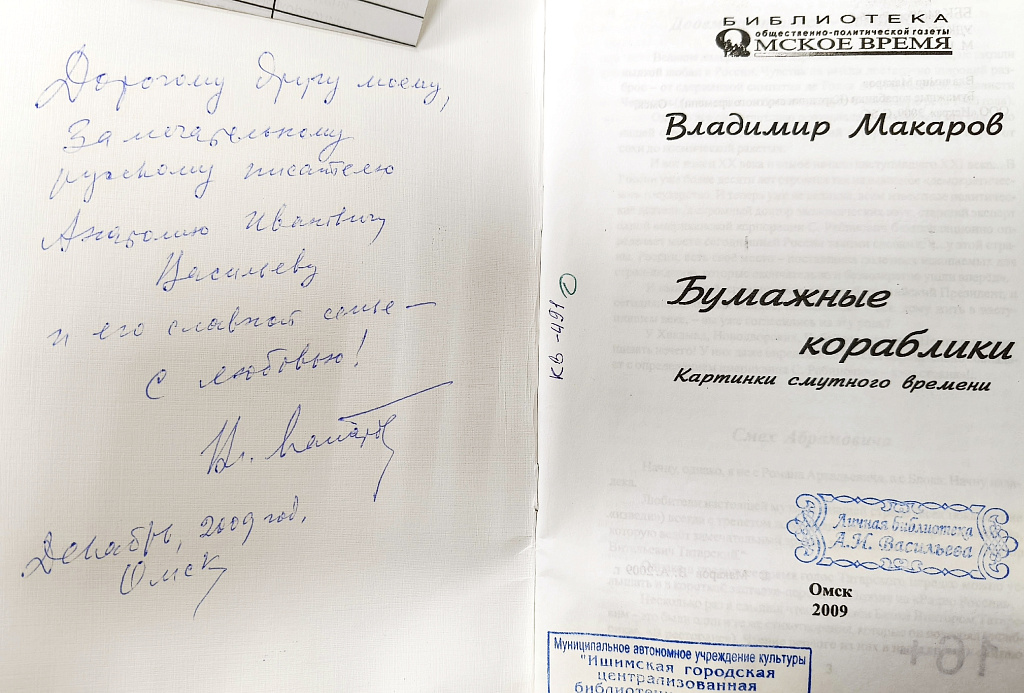 Дорогому другу моему,
Замечательному
русскому писателю
Анатолию Ивановичу
Васильеву
и его славной семье —
с любовью!
Вл. Макаров
Декабрь, 2009 год,
Омск
БИБЛИОТЕКА
общественно-политической газеты
ОМСКОЕ ВРЕМЯ
Владимир Макаров
КВ-491
Бумажные
кораблики
Картинки смутного времени
Личная библиотека
А.И. Васильева
Омск
2009
Муниципальное автономное учреждение культуры
"Ишимская городская
централизованная